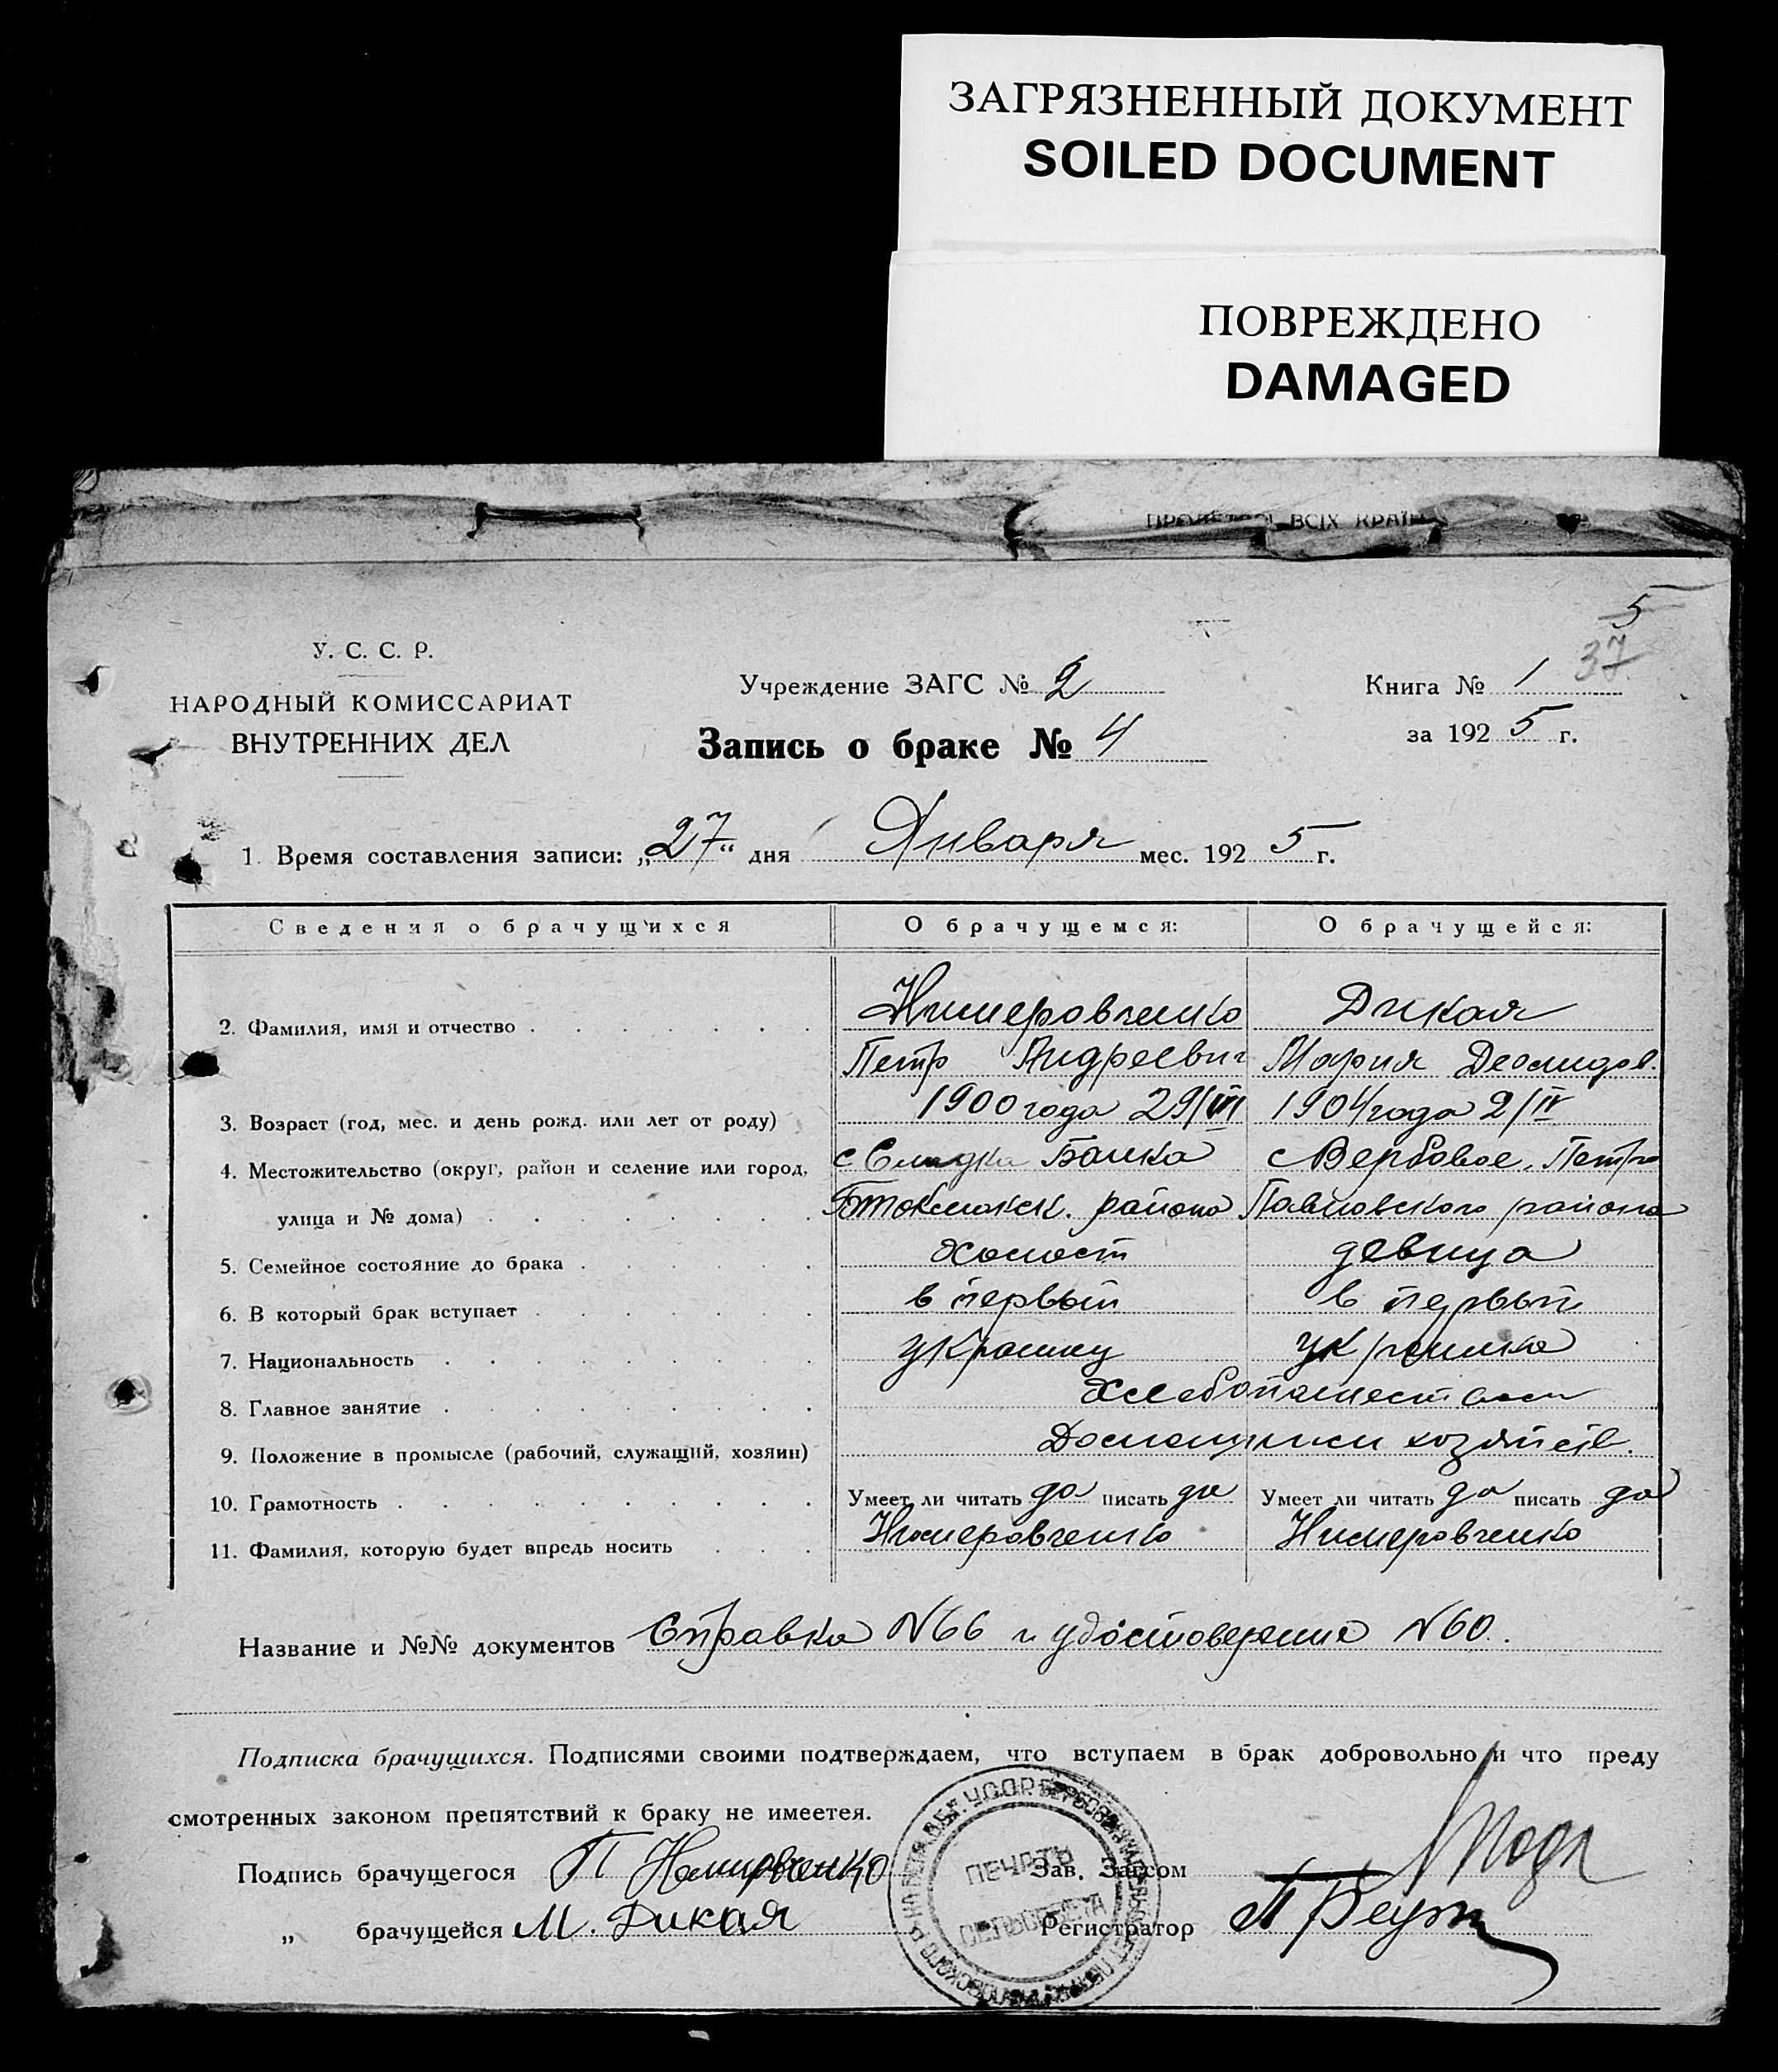 ЗАГРЯЗНЕННЫЙ ДОКУМЕНТ
SOILED DOCUMENT
ПОВРЕЖДЕНО
DAMAGED
ВСІХ КРАЇН
5
37
У. С. С. Р.
НАРОДНЫЙ КОМИССАРИАТ
ВНУТРЕННИХ ДЕЛ
Учреждение ЗАГС № 2
Книга № 1
Запись о браке № 4
за 1925 г.
1. Время составления записи: „27“ дня Января мес. 1925 г.
Сведения о брачущихся О брачущемся: О брачущейся:
2. Фамилия, имя и отчество Нимеровченко Дикая
Петр Андреевич Мария Деомидов.
3. Возраст (год, мес. и день рожд. или лет от роду) 1900 года 29/VII 1904 года 2/IV
4. Местожительство (округ, район и селение или город, с Сладка Балка с Вербовое, Петро
улица и № дома) Бтокмакск. района Павловского района
5. Семейное состояние до брака Холост девица
6. В который брак вступает в первый в первый
7. Национальность украинец украинка
8. Главное занятие Хлебопашеством
9. Положение в промысле (рабочий, служащий, хозяин) хозяйств.
10. Грамотность Умеет ли читать да писать да Умеет ли читать да писать да
11. Фамилия, которую будет впредь носить Нимеровченко Нимеровченко
Название и №№ документов Справка N66 и удостоверение N60.
Подписка брачущихся. Подписями своими подтверждаем, что вступаем в брак добровольно и что преду
смотренных законом препятствий к браку не имеется.
Подпись брачущегося П Немировченко
Зав. Загсом
„ брачущейся М. Дикая
Регистратор
ПЕЧАТЬ
СЕЛЬСОВЕТА